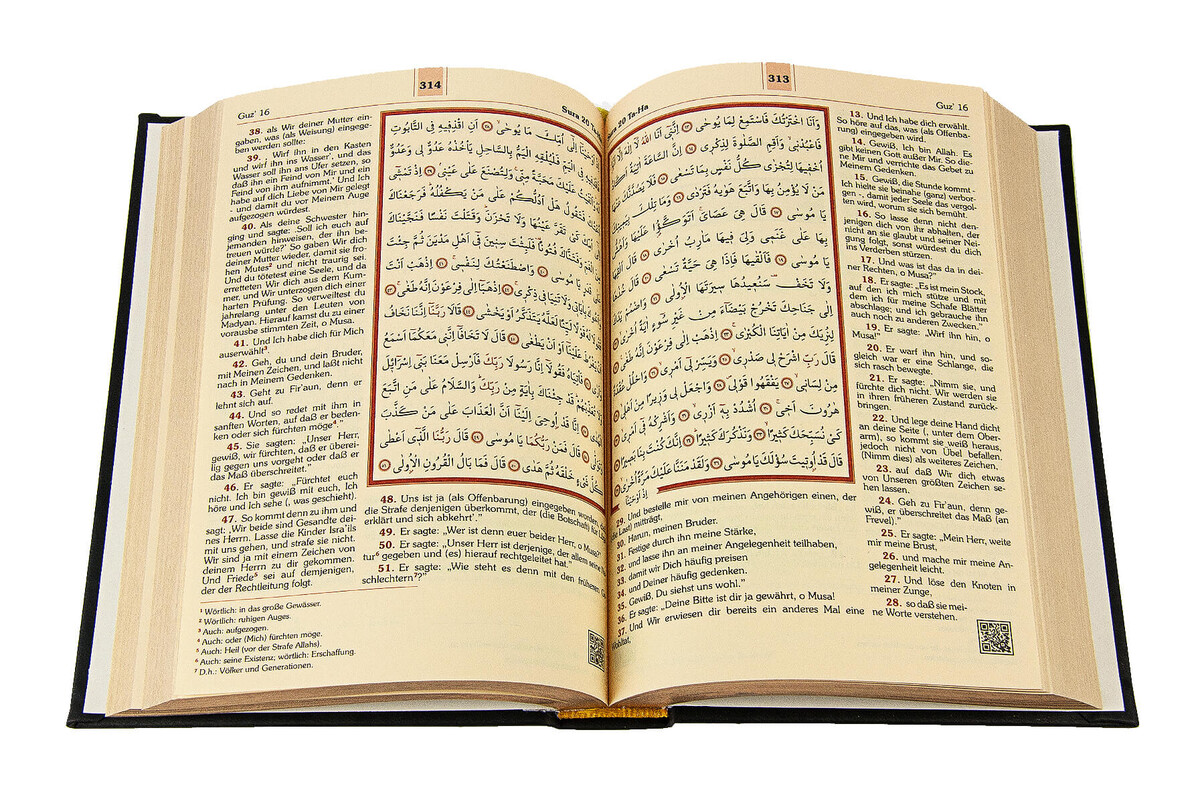 313
Guz' 16
Sura 20 Ta-Ha
وَاَنَا اخْتَرْتُكَ فَاسْتَمِعْ لِمَا يُوحٰى ﴿١٣﴾ اِنَّنٖٓي اَنَا اللّٰهُ لَٓا اِلٰهَ اِلَّٓا
فَاعْبُدْنٖي وَاَقِمِ الصَّلٰوةَ لِذِكْرٖي ﴿١٤﴾ اِنَّ السَّاعَةَ اٰتِيَةٌ اَكَادُ
اُخْفٖيهَا لِتُجْزٰى كُلُّ نَفْسٍ بِمَا تَسْعٰى ﴿١٥﴾ فَلَا يَصُدَّنَّكَ عَنْهَا
مَنْ لَا يُؤْمِنُ بِهَا وَاتَّبَعَ هَوٰيهُ فَتَرْدٰى ﴿١٦﴾ وَمَا تِلْكَ بِيَمٖينِكَ
يَا مُوسٰى ﴿١٧﴾ قَالَ هِيَ عَصَايَۚ اَتَوَكَّؤُ۬ا عَلَيْهَا وَاَهُشُّ
بِهَا عَلٰى غَنَمٖي وَلِيَ فٖيهَا مَاٰرِبُ اُخْرٰى ﴿١٨﴾ قَالَ اَلْقِهَا
يَا مُوسٰى ﴿١٩﴾ فَاَلْقٰيهَا فَاِذَا هِيَ حَيَّةٌ تَسْعٰى ﴿٢٠﴾ قَالَ خُذْهَا
وَلَا تَخَفْ۠ سَنُعٖيدُهَا سٖيرَتَهَا الْاُو۫لٰى ﴿٢١﴾ وَاضْمُمْ يَدَكَ
اِلٰى جَنَاحِكَ تَخْرُجْ بَيْضَٓاءَ مِنْ غَيْرِ سُٓوءٍ اٰيَةً اُخْرٰى
لِنُرِيَكَ مِنْ اٰيَاتِنَا الْكُبْرٰى ﴿٢٣﴾ اِذْهَبْ اِلٰى فِرْعَوْنَ اِنَّهُ طَغٰى
قَالَ رَبِّ اشْرَحْ لٖي صَدْرٖي ﴿٢٥﴾ وَيَسِّرْ لٖٓي اَمْرٖي ﴿٢٦﴾ وَاحْلُلْ عُقْدَةً
مِنْ لِسَانٖي ﴿٢٧﴾ يَفْقَهُوا قَوْلٖي ﴿٢٨﴾ وَاجْعَلْ لٖي وَزٖيرًا مِنْ اَهْلٖي
هٰرُونَ اَخٖي ﴿٣٠﴾ اُشْدُدْ بِهٖٓ اَزْرٖي ﴿٣١﴾ وَاَشْرِكْهُ فٖٓي اَمْرٖي
كَيْ نُسَبِّحَكَ كَثٖيرًا ﴿٣٣﴾ وَنَذْكُرَكَ كَثٖيرًا ﴿٣٤﴾ اِنَّكَ كُنْتَ بِنَا بَصٖيرًا
قَالَ قَدْ اُو۫تٖيتَ سُؤْلَكَ يَا مُوسٰى ﴿٣٦﴾ وَلَقَدْ مَنَنَّا عَلَيْكَ مَرَّةً اُخْرٰى
اِذْ اَوْحَيْنَٓا
13. Und Ich habe dich erwählt.
So höre auf das, was (als Offenba-
rung) eingegeben wird.
14. Gewiß, Ich bin Allah. Es
gibt keinen Gott außer Mir. So die-
ne Mir und verrichte das Gebet zu
Meinem Gedenken.
15. Gewiß, die Stunde kommt -
Ich hielte sie beinahe (ganz) verbor-
gen -, damit jeder Seele das vergol-
ten wird, worum sie sich bemüht.
16. So lasse denn nicht den-
jenigen dich von ihr abhalten, der
nicht an sie glaubt und seiner Nei-
gung folgt, sonst würdest du dich
ins Verderben stürzen.
17. Und was ist das da in dei-
ner Rechten, o Musa?"
18. Er sagte: „Es ist mein Stock,
auf den ich mich stütze und mit
dem ich für meine Schafe Blätter
abschlage; und ich gebrauche ihn
auch noch zu anderen Zwecken."
19. Er sagte: „Wirf ihn hin, o
Musa!"
20. Er warf ihn hin, und so-
gleich war er eine Schlange, die
sich rasch bewegte.
21. Er sagte: „Nimm sie, und
fürchte dich nicht. Wir werden sie
in ihren früheren Zustand zurück-
bringen.
22. Und lege deine Hand dicht
an deine Seite (, unter dem Ober-
arm), so kommt sie weiß heraus,
jedoch nicht von Übel befallen,
(Nimm dies) als weiteres Zeichen,
23. auf daß Wir dich etwas
von Unseren größten Zeichen se-
hen lassen.
24. Geh zu Fir'aun, denn ge-
wiß, er überschreitet das Maß (an
Frevel)."
25. Er sagte: „Mein Herr, weite
mir meine Brust,
26. und mache mir meine An-
gelegenheit leicht.
27. Und löse den Knoten in
meiner Zunge,
28. so daß sie mei-
ne Worte verstehen.
29. Und bestelle mir von meinen Angehörigen einen, der
(die Last) mitträgt,
30. Harun, meinen Bruder.
31. Festige durch ihn meine Stärke,
32. und lasse ihn an meiner Angelegenheit teilhaben,
33. damit wir Dich häufig preisen
34. und Deiner häufig gedenken.
35. Gewiß, Du siehst uns wohl."
36. Er sagte: „Deine Bitte ist dir ja gewährt, o Musa!
37. Und Wir erwiesen dir bereits ein anderes Mal eine
Wohltat,
314
Guz' 16
Sura 20 Ta-
اِلٰٓى اُمِّكَ مَا يُوحٰىۙ ﴿٣٨﴾ اَنِ اقْذِفٖيهِ فِي التَّابُوتِ
فِي الْيَمِّ فَلْيُلْقِهِ الْيَمُّ بِالسَّاحِلِ يَأْخُذْهُ عَدُوٌّ لٖي وَعَدُوٌّ
عَلَيْكَ مَحَبَّةً مِنّٖي وَلِتُصْنَعَ عَلٰى عَيْنٖي ﴿٣٩﴾ اِذْ تَمْشٖٓي
فَتَقُولُ هَلْ اَدُلُّكُمْ عَلٰى مَنْ يَكْفُلُهُ فَرَجَعْنَاكَ
كَيْ تَقَرَّ عَيْنُهَا وَلَا تَحْزَنَ وَقَتَلْتَ نَفْسًا فَنَجَّيْنَاكَ
الْغَمِّ وَفَتَنَّاكَ فُتُونًا فَلَبِثْتَ سِنٖينَ فٖٓي اَهْلِ مَدْيَنَ ثُمَّ جِئْتَ
عَلٰى قَدَرٍ يَا مُوسٰى ﴿٤٠﴾ وَاصْطَنَعْتُكَ لِنَفْسٖي ﴿٤١﴾ اِذْهَبْ اَنْتَ
وَلَا تَنِيَا فٖي ذِكْرٖي ﴿٤٢﴾ اِذْهَبَٓا اِلٰى فِرْعَوْنَ اِنَّهُ طَغٰى ﴿٤٣﴾
قَوْلًا لَيِّنًا لَعَلَّهُ يَتَذَكَّرُ اَوْ يَخْشٰى ﴿٤٤﴾ قَالَا رَبَّنَٓا اِنَّنَا نَخَافُ
عَلَيْنَٓا اَوْ اَنْ يَطْغٰى ﴿٤٥﴾ قَالَ لَا تَخَافَٓا اِنَّنٖي مَعَكُمَٓا اَسْمَعُ
فَأْتِيَاهُ فَقُولَٓا اِنَّا رَسُولَا رَبِّكَ فَاَرْسِلْ مَعَنَا بَنٖٓي اِسْرَٓائٖلَ
قَدْ جِئْنَاكَ بِاٰيَةٍ مِنْ رَبِّكَ وَالسَّلَامُ عَلٰى مَنِ اتَّبَعَ
اِنَّا قَدْ اُو۫حِيَ اِلَيْنَٓا اَنَّ الْعَذَابَ عَلٰى مَنْ كَذَّبَ
قَالَ فَمَنْ رَبُّكُمَا يَا مُوسٰى ﴿٤٩﴾ قَالَ رَبُّنَا الَّذٖٓي اَعْطٰى
كُلَّ شَيْءٍ خَلْقَهُ ثُمَّ هَدٰى ﴿٥٠﴾ قَالَ فَمَا بَالُ الْقُرُونِ الْاُو۫لٰى ﴿٥١﴾
38. als Wir deiner Mutter ein-
gaben, was (als Weisung) eingege-
ben werden sollte:
39. ‚Wirf ihn in den Kasten
und wirf ihn ins Wasser¹, und das
Wasser soll ihn ans Ufer setzen, so
daß ihn ein Feind von Mir und ein
Feind von ihm aufnimmt.' Und Ich
habe auf dich Liebe von Mir gelegt
- und damit du vor Meinem Auge
aufgezogen würdest.
40. Als deine Schwester hin-
ging und sagte: ‚Soll ich euch auf
jemanden hinweisen, der ihn be-
treuen würde?' So gaben Wir dich
deiner Mutter wieder, damit sie fro-
hen Mutes² und nicht traurig sei.
Und du tötetest eine Seele, und da
erretteten Wir dich aus dem Kum-
mer, und Wir unterzogen dich einer
harten Prüfung. So verweiltest du
jahrelang unter den Leuten von
Madyan. Hierauf kamst du zu einer
vorausbestimmten Zeit, o Musa.
41. Und Ich habe dich für Mich
auserwählt³.
42. Geh, du und dein Bruder,
mit Meinen Zeichen, und laßt nicht
nach in Meinem Gedenken.
43. Geht zu Fir'aun, denn er
lehnt sich auf.
44. Und so redet mit ihm in
sanften Worten, auf daß er beden-
ken oder sich fürchten möge⁴."
45. Sie sagten: „Unser Herr,
gewiß, wir fürchten, daß er überei-
lig gegen uns vorgeht oder daß er
das Maß überschreitet."
46. Er sagte: „Fürchtet euch
nicht. Ich bin gewiß mit euch, Ich
höre und Ich sehe (, was geschieht).
47. So kommt denn zu ihm und
sagt: ‚Wir beide sind Gesandte dei-
nes Herrn. Lasse die Kinder Isra'ils
mit uns gehen, und strafe sie nicht.
Wir sind ja mit einem Zeichen von
deinem Herrn zu dir gekommen.
Und Friede⁵ sei auf demjenigen,
der der Rechtleitung folgt.
48. Uns ist ja (als Offenbarung) eingegeben worden,
die Strafe denjenigen überkommt, der (die Botschaft) für
erklärt und sich abkehrt'."
49. Er sagte: „Wer ist denn euer beider Herr, o Musa?"
50. Er sagte: „Unser Herr ist derjenige, der allem seine
tur⁶ gegeben und (es) hierauf rechtgeleitet hat."
51. Er sagte: „Wie steht es denn mit den früheren Ge-
schlechtern⁷?"
¹ Wörtlich: in das große Gewässer.
² Wörtlich: ruhigen Auges.
³ Auch: aufgezogen.
⁴ Auch: oder (Mich) fürchten möge.
⁵ Auch: Heil (vor der Strafe Allahs).
⁶ Auch: seine Existenz; wörtlich: Erschaffung.
⁷ D.h.: Völker und Generationen.